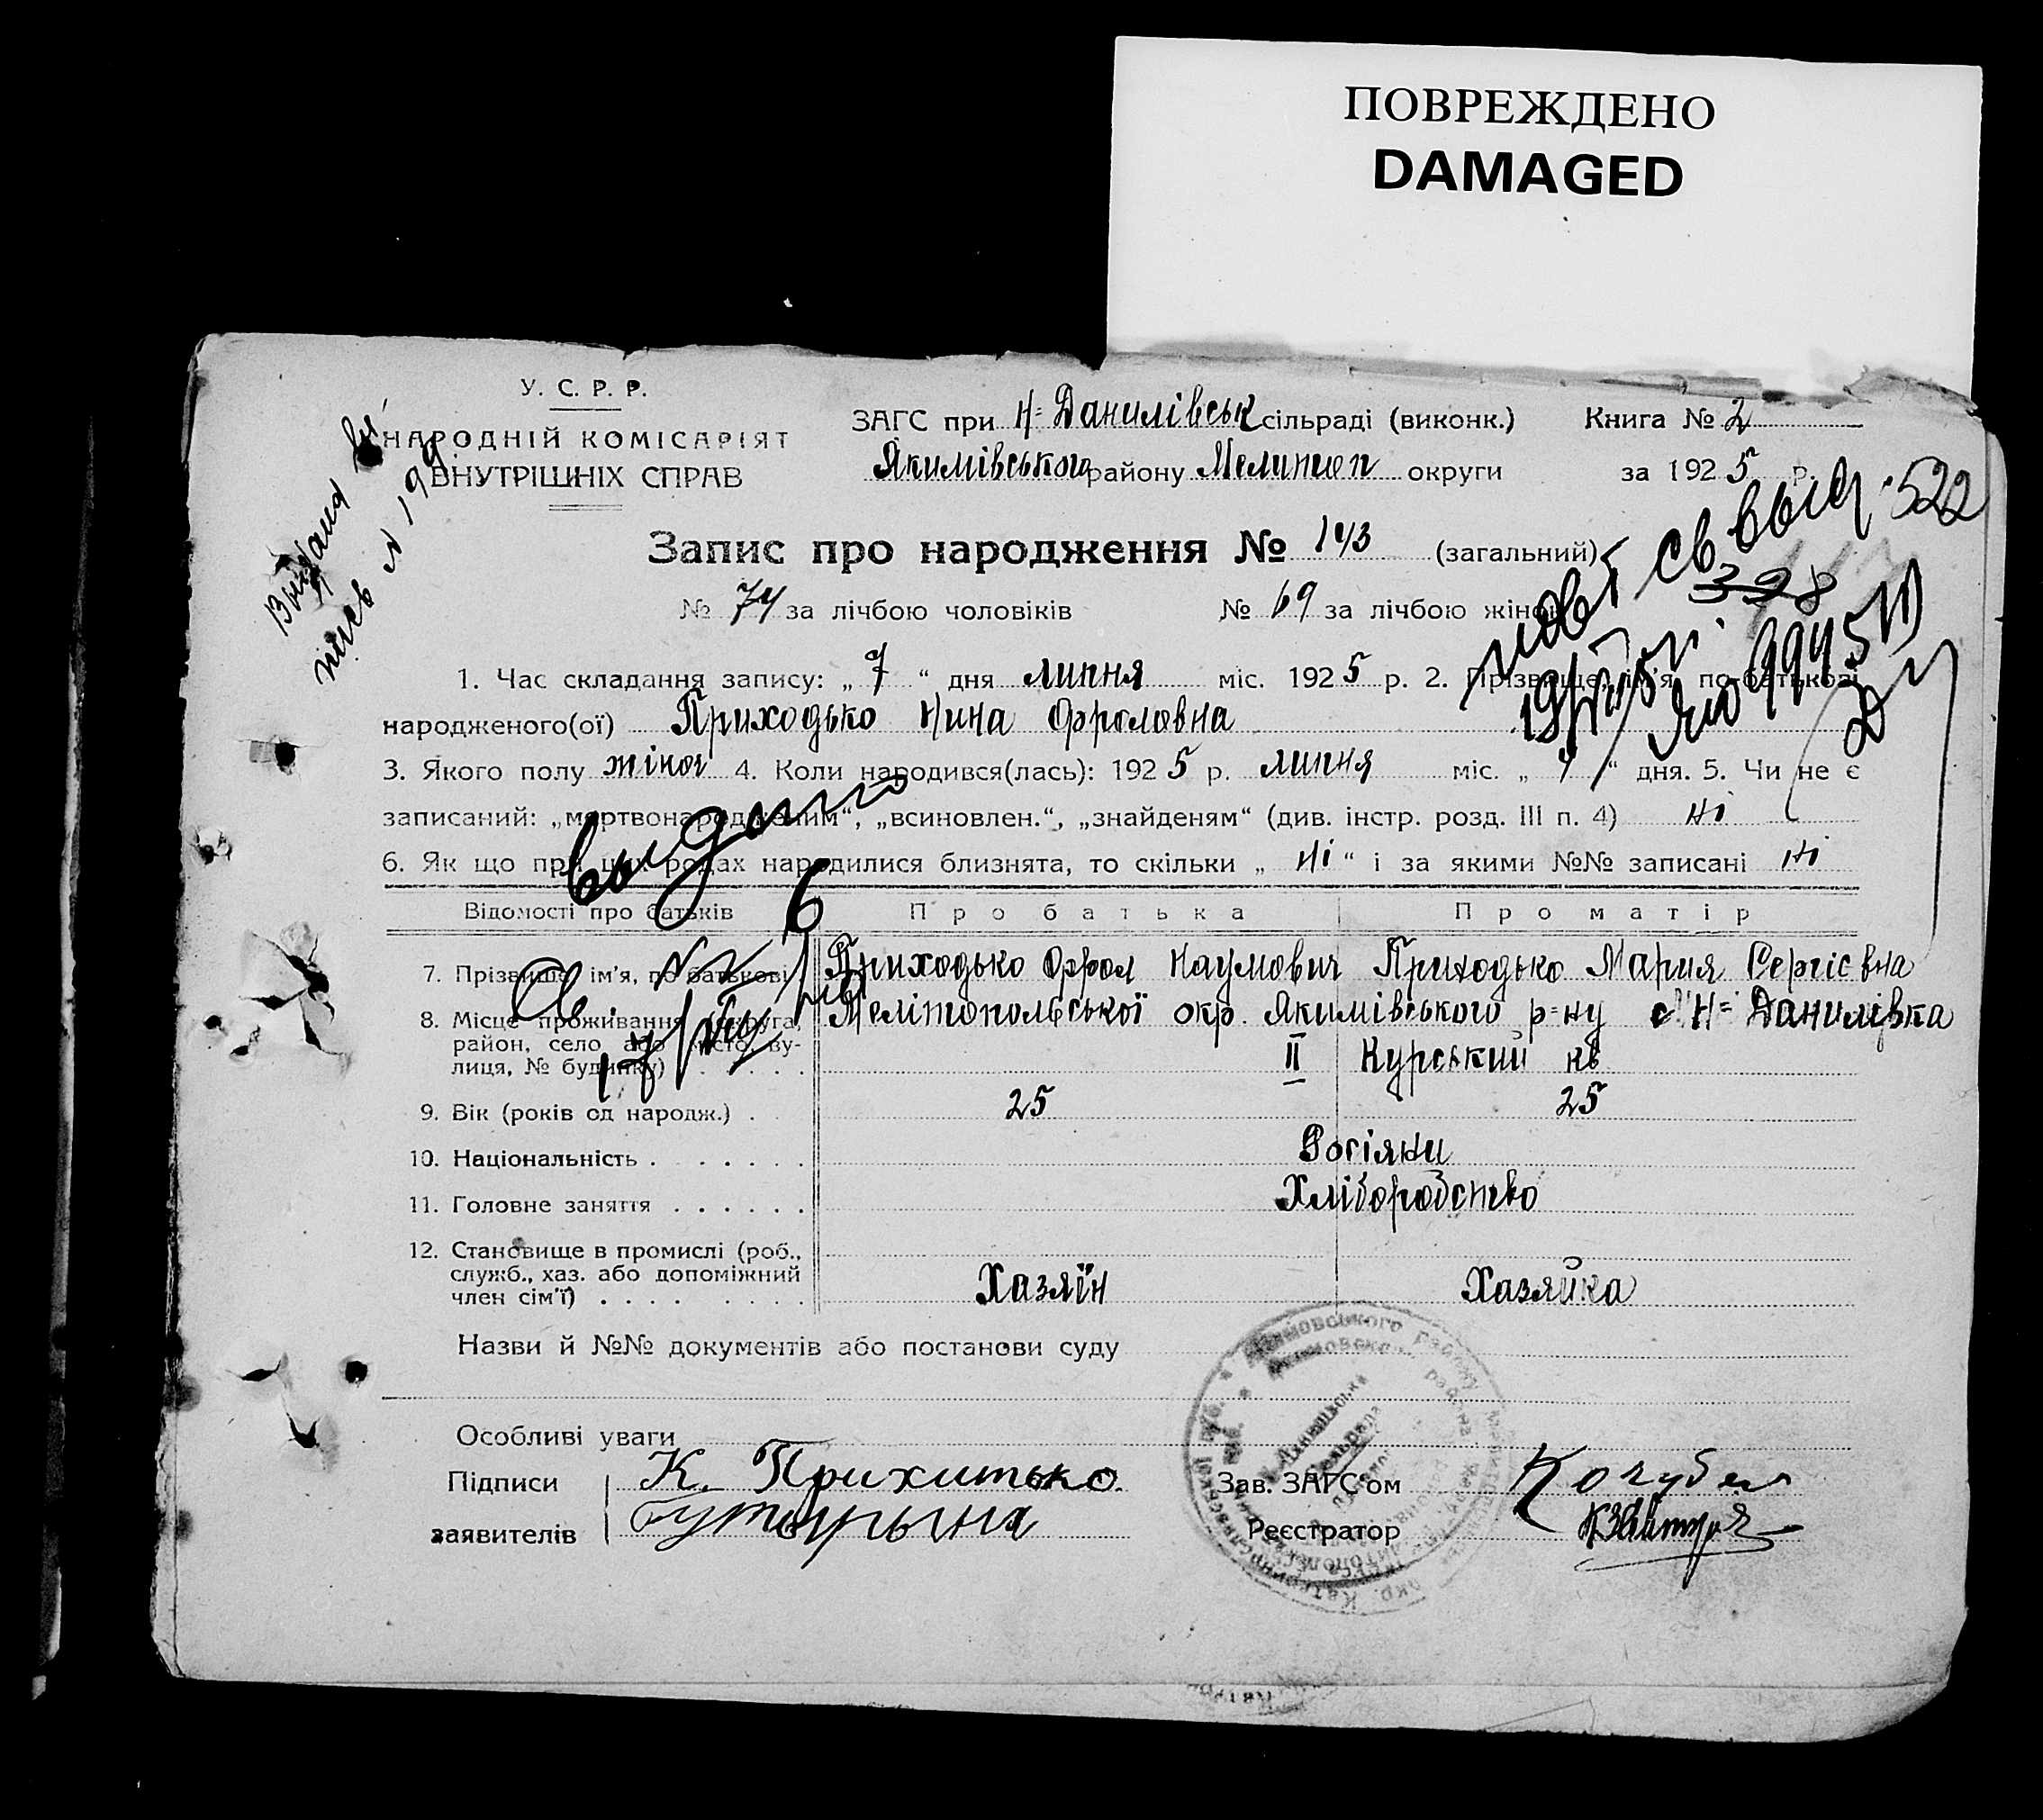 ПОВРЕЖДЕНО
DAMAGED
У. С. Р. Р.
НАРОДНІЙ КОМІСАРІЯТ
ВНУТРІШНІХ СПРАВ
ЗАГС при Н-Данилівськ сільраді (виконк.) Книга № 2
Якимівського району Мелитоп округи за 1925 р.
Запис про народження № 143 (загальний)
№ 74 за лічбою чоловіків № 69 за лічбою жінок
1. Час складання запису: „ 7 “ дня липня міс. 1925 р. 2. Прізвище, ім'я, по батькові
народженого(ої) Приходько Нина Фроловна
3. Якого полу жіноч 4. Коли народився(лась): 1925 р. липня міс. „ 4 “ дня. 5. Чи не є
записаний: „мертвонародженим“, „всиновлен.“, „знайденям“ (див. інстр. розд. III п. 4) ні
6. Як що при цих родах народилися близнята, то скільки „ ні “ і за якими №№ записані ні
выдано
522
398
Відомості про батьків Про батька Про матір
7. Прізвище, ім'я, по батькові Приходько Фрол Наумович Приходько Мария Сергієвна
8. Місце проживання (округа, район, село або місто, вулиця, № будинку) Мелітопольської окр. Якимівського р-ну с. Н-Данилівка
II Курський кв
9. Вік (років од народж.) 25 25
10. Національність Росіяни
11. Головне заняття Хліборобство
12. Становище в промислі (роб., служб., хаз. або допоміжний член сім'ї) Хазяїн Хазяйка
Назви й №№ документів або постанови суду
Особливі уваги
Підписи К. Прихитько Зав. ЗАГС'ом Кочубей
заявителів Бутырына Реєстратор